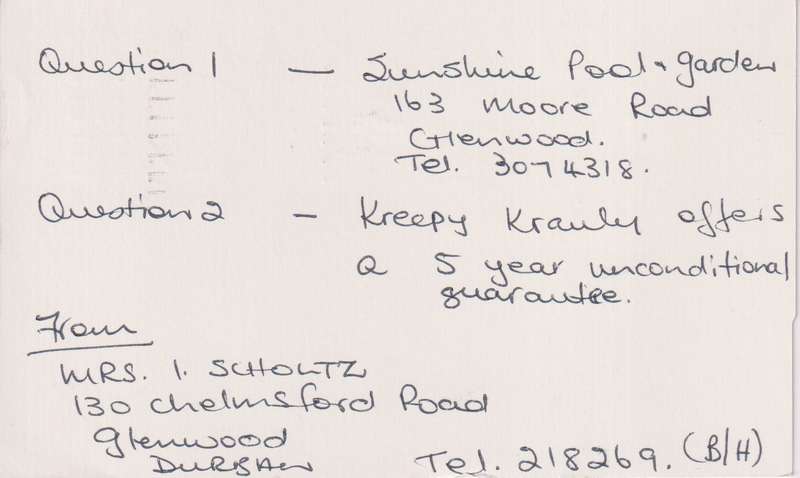 Question 1 — Sunshine Pool & garden
163 Moore Road
Glenwood.
Tel. 3074318.
Question 2 — Kreepy Krauly offers
a 5 year unconditional
guarantee.
From
MRS. I. SCHOLTZ
130 Chelmsford Road
Glenwood
DURBAN Tel. 218269. (B/H)